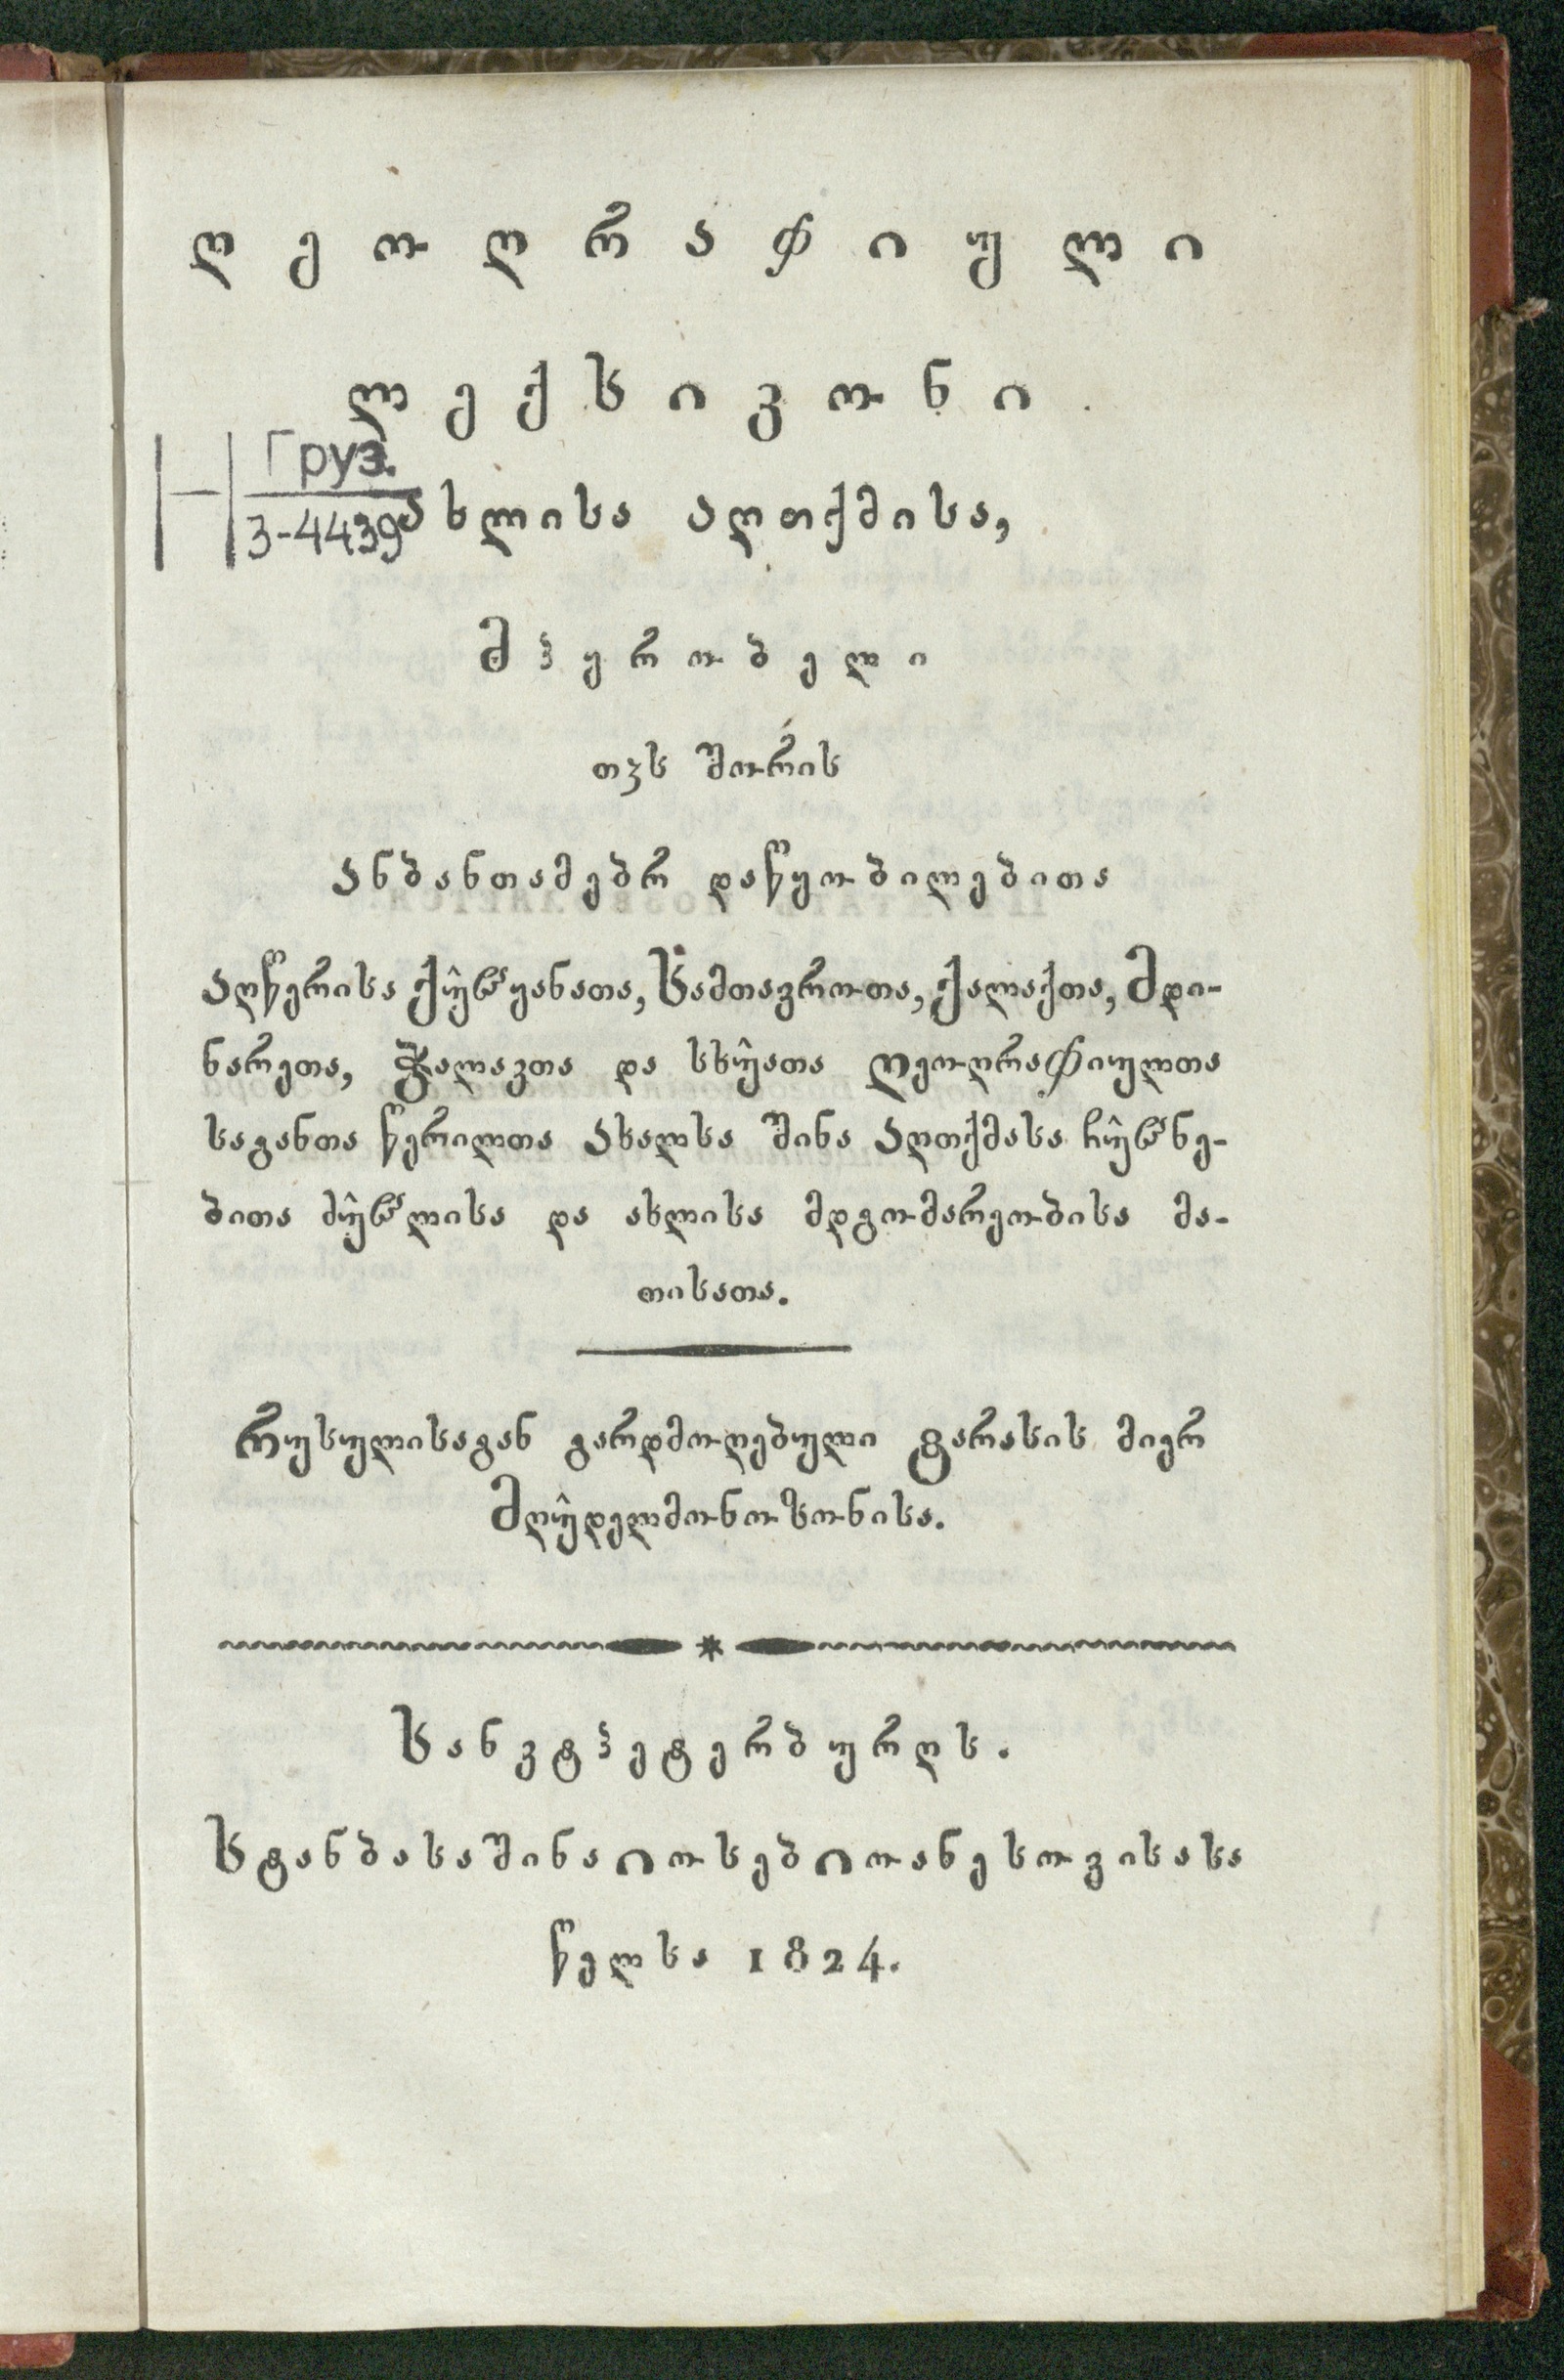 ღეოღრაჶიული
ლექსიკონი
Груз.
3-4439
ახლისა აღთქმისა,
მპყრობელი
თჳს შორის
ანბანთამებრ დაწყობილებითა
აღწერისა ქუ̂ჱყანათა, სამთავროთა, ქალაქთა, მდი-
ნარეთა, ჭალაკთა და სხუ̂ათა ღეოღრაჶიულთა
საგანთა წერილთა ახალსა შინა აღთქმასა ჩუ̂ჱნე-
ბითა ძუ̂ჱლისა და ახლისა მდგომარეობისა მა-
თისათა.
რუსულისაგან გარდმოღებული ტარასის მიერ
მღუ̂დელმონოზონისა.
სანკტპეტერბურღს.
სტანბასა შინა იოსებ იოანესოვისასა
წელსა 1824.